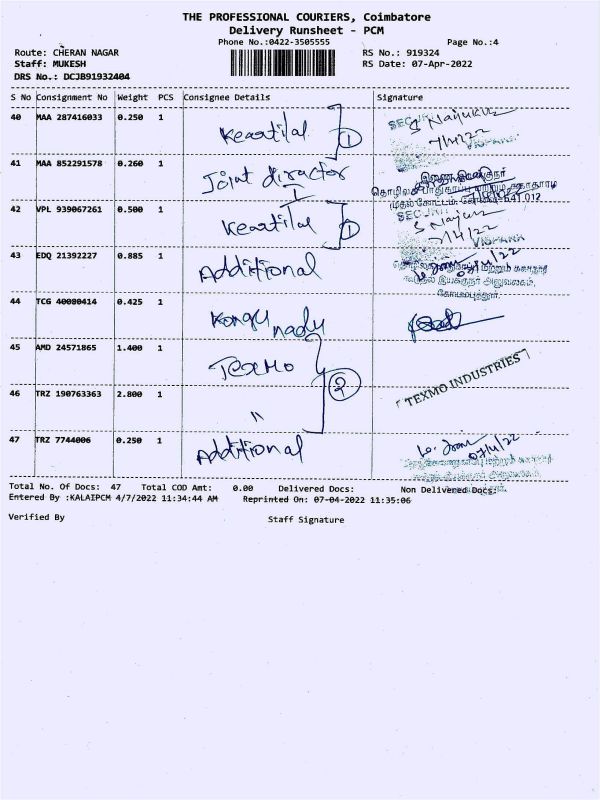 THE PROFESSIONAL COURIERS, Coimbatore
Delivery Runsheet - PCM
Phone No.:0422-3505555
Page No.:4
Route: CHERAN NAGAR
RS No.: 919324
Staff: MUKESH
RS Date: 07-Apr-2022
DRS No.: DCJB91932404
S No Consignment No Weight PCS Consignee Details Signature
40 MAA 287416033 0.250 1
1
7/4/22
41 MAA 852291578 0.260 1 Joint director
I
42 VPL 939067261 0.500 1
1
7/4/22
43 EDQ 21392227 0.885 1 Additional
44 TCG 40080414 0.425 1 Kongu nadu
45 AMD 24571865 1.400 1 Texmo
2
TEXMO INDUSTRIES
46 TRZ 190763363 2.800 1 "
47 TRZ 7744006 0.250 1 Additional
07/4/22
Total No. Of Docs: 47 Total COD Amt: 0.00 Delivered Docs: Non Delivered Docs:
Entered By :KALAIPCM 4/7/2022 11:34:44 AM Reprinted On: 07-04-2022 11:35:06
Verified By
Staff Signature